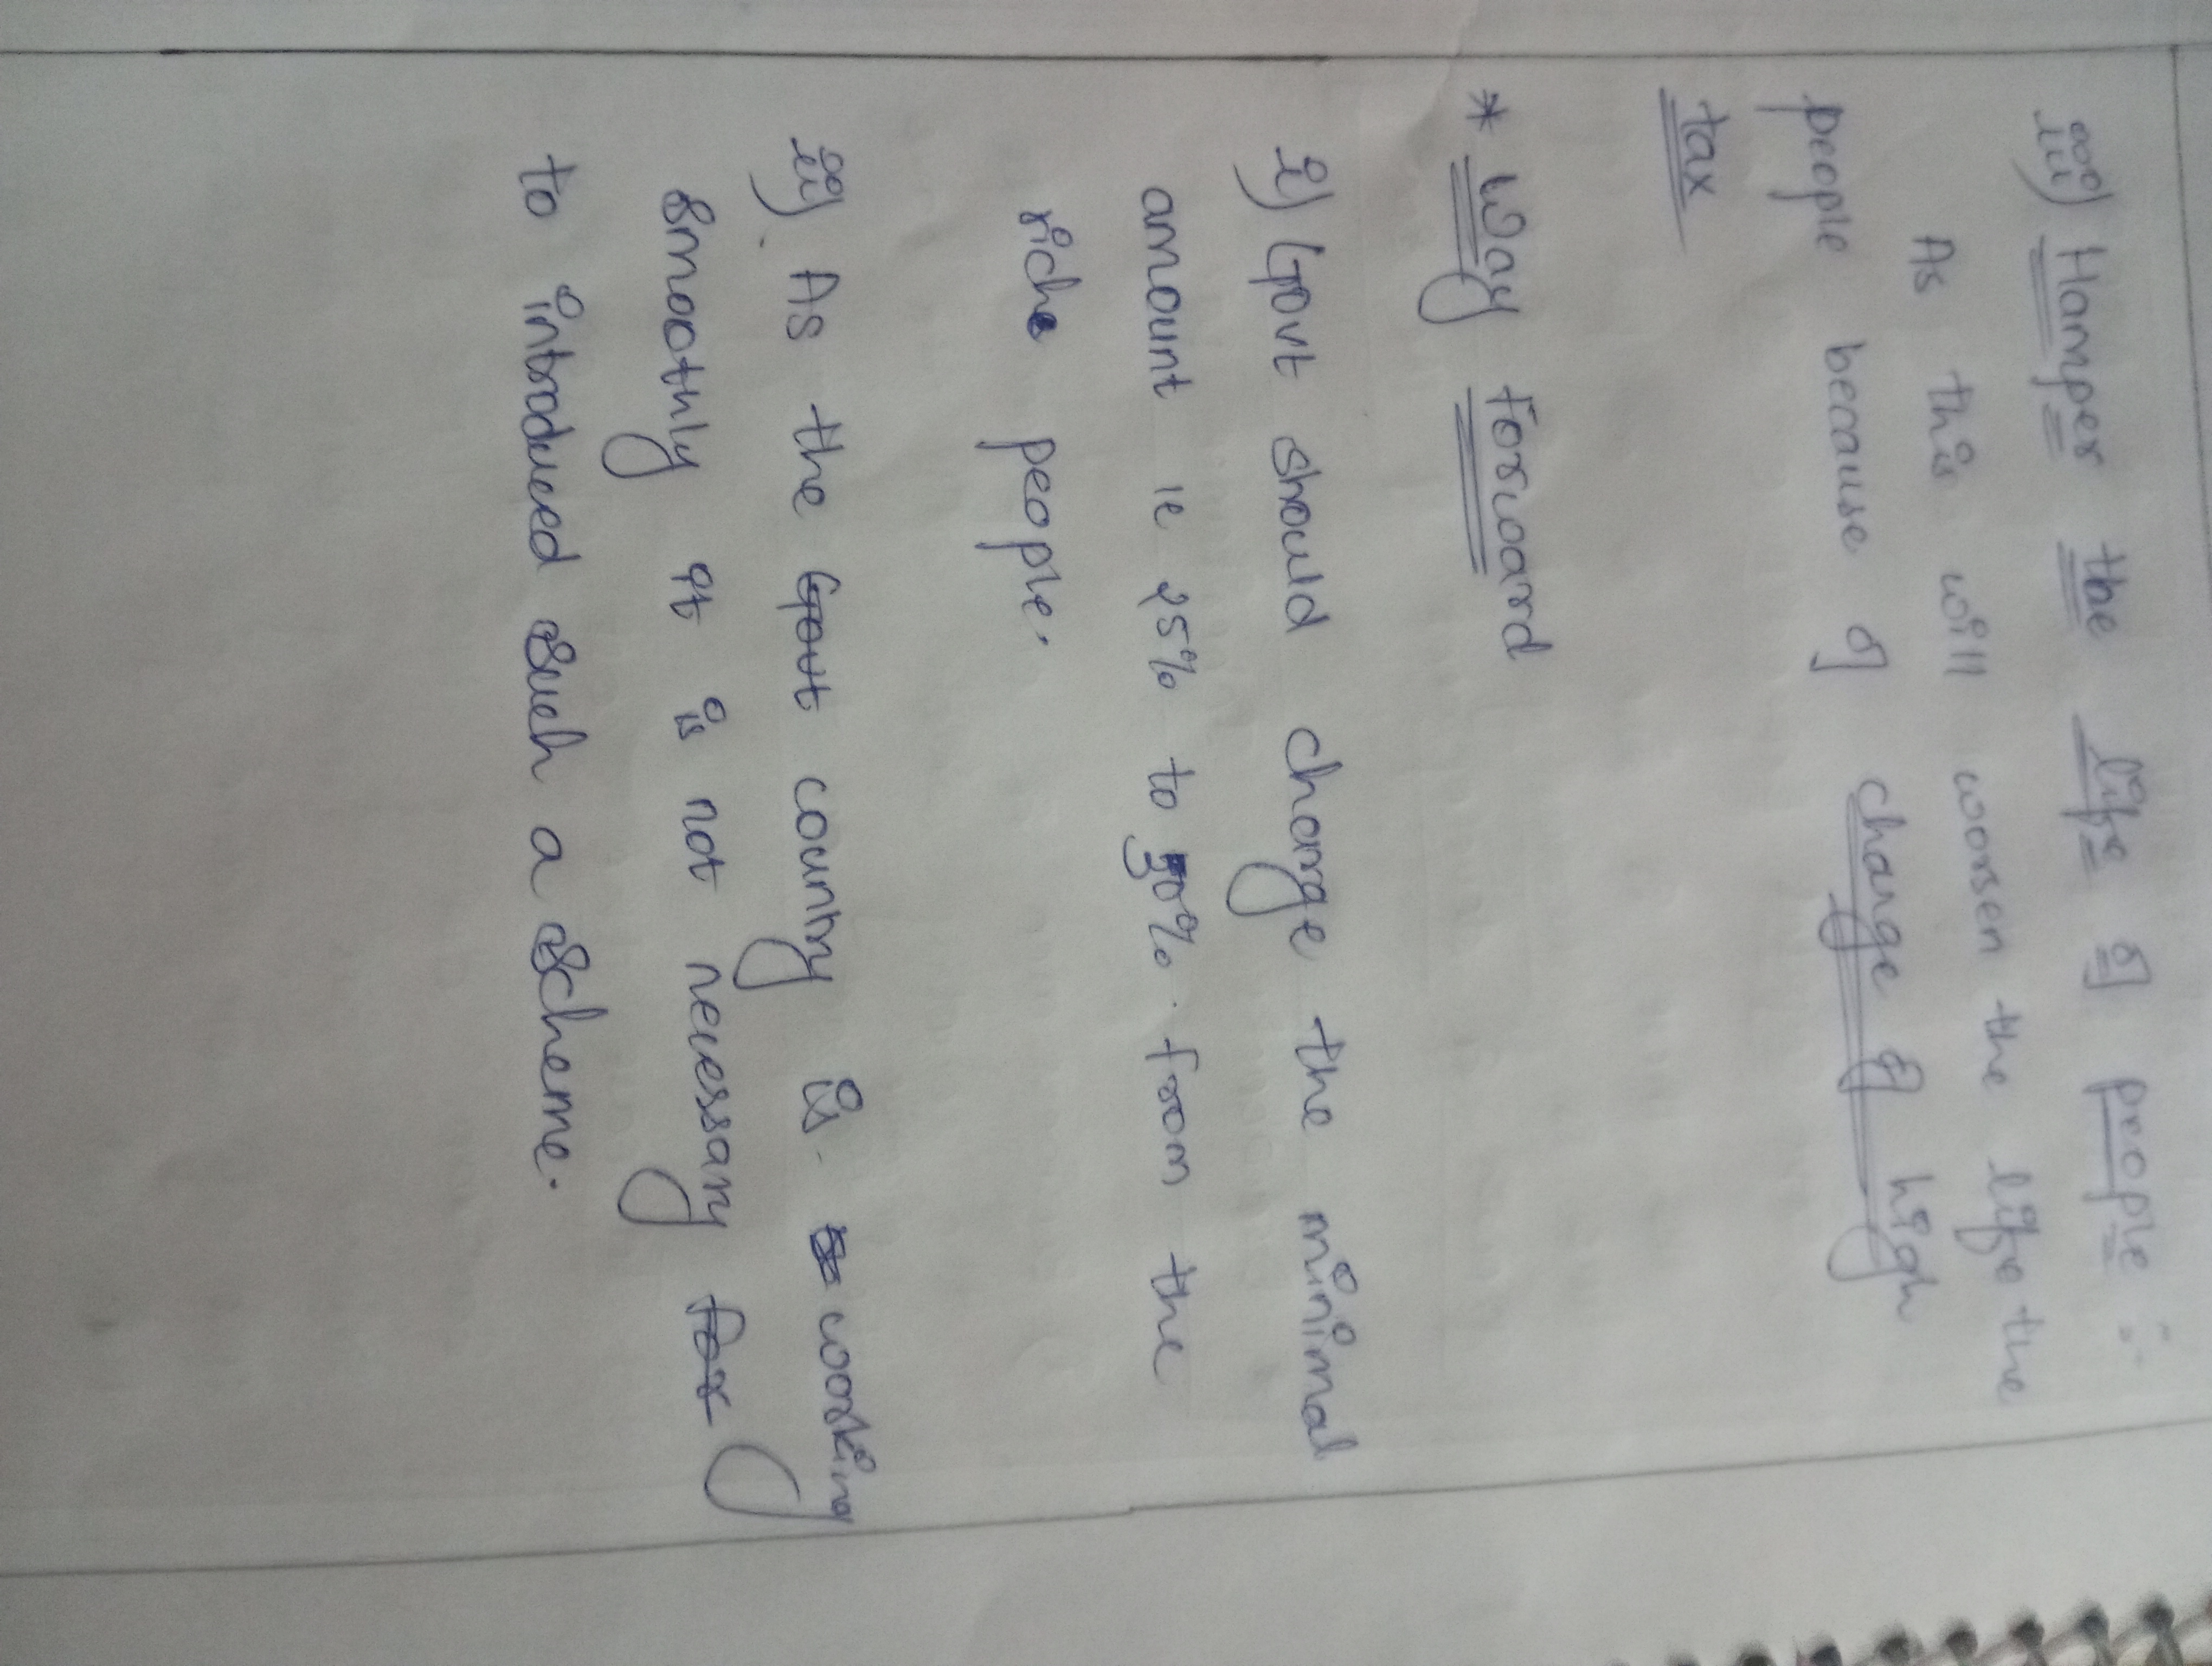 iii) Hamper the life of people :-
As this will worsen the life the
people because of charge of high
tax
* Way forward
i) Govt should charge the minimal
amount ie 25% to 30% from the
rich people.
ii) As the Govt country is working
smoothly it is not necessary for
to introduced such a scheme.